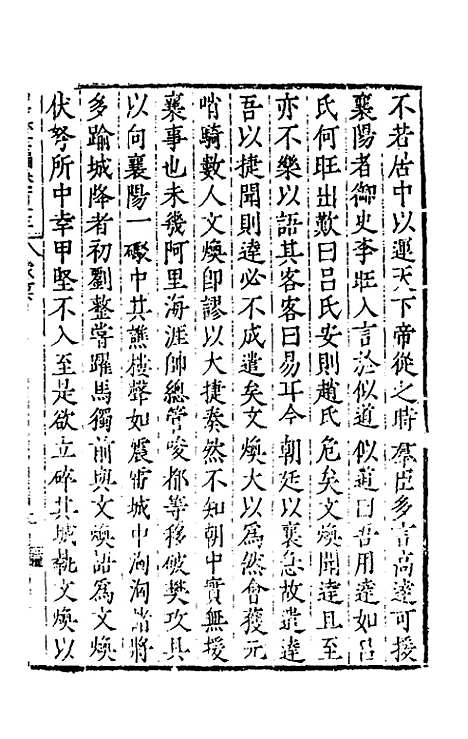 不若居中以運天下帝從之時羣臣多言高達可援
襄陽者御史李旺入言於似道似道曰吾用達如呂
氏何旺出歎曰呂氏安則趙氏危矣文煥聞達且至
亦不樂以語其客客曰易耳今朝廷以襄急故遣達
吾以捷聞則達必不成遣矣文煥大以爲然會獲元
哨騎數人文煥卽謬以大捷奏然不知朝中實無援
襄事也未幾阿里海涯帥總管唆都等移破樊攻具
以向襄陽一礮中其譙樓聲如震雷城中洶洶諸將
多踰城降者初劉整嘗躍馬獨前與文煥語爲文煥
伏弩所中幸甲堅不入至是欲立碎其城執文煥以